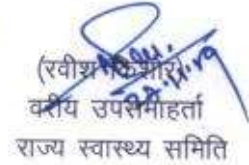 (रवीश किशोर)
22.11.19
वरीय उपसमाहर्ता
राज्य स्वास्थ्य समिति